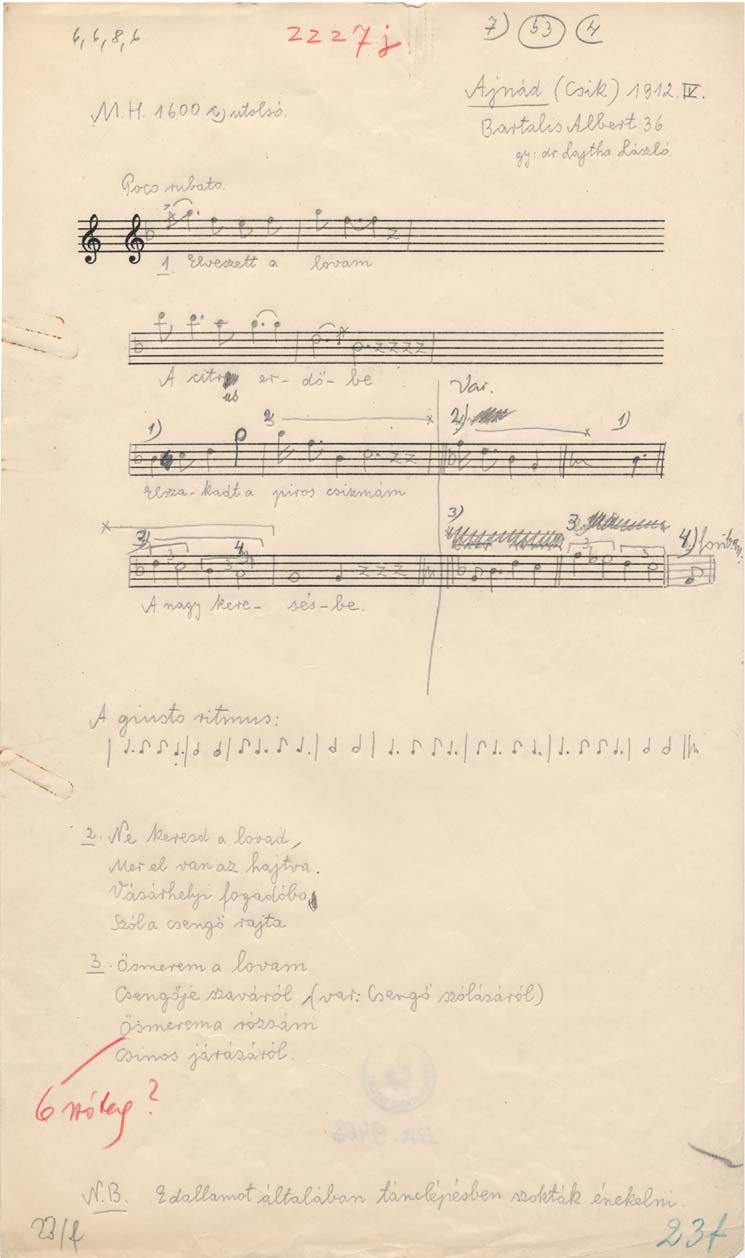 6, 6, 8, 6
2227j
7) 53 4
Ajnád (Csik) 1912. IV.
M. H. 1600 utolsó.
Bartalis Albert 36
gy: dr. Lajtha László.
Poco rubato.
1. Elveszett a lovam
A citrus er-dő-be
Var.
1) 2) 2) 1)
Elsza-kadt a piros csizmám
3) 4) 3) 3) 4)
3 3 3 3
A nagy kere-sés-be.
A giusto ritmus:
2. Ne keresd a lovad,
Mer el van az hajtva.
Vásárhelyi fogadóba
Szól a csengő rajta
3. Ösmerem a lovam
Csengője szaváról (var: Csengő szólásáról)
Ösmerem a rózsám
Csinos járásáról.
6 szótag?
N.B. E dallamot általában tánclépésben szokták énekelni.
23/f
23f